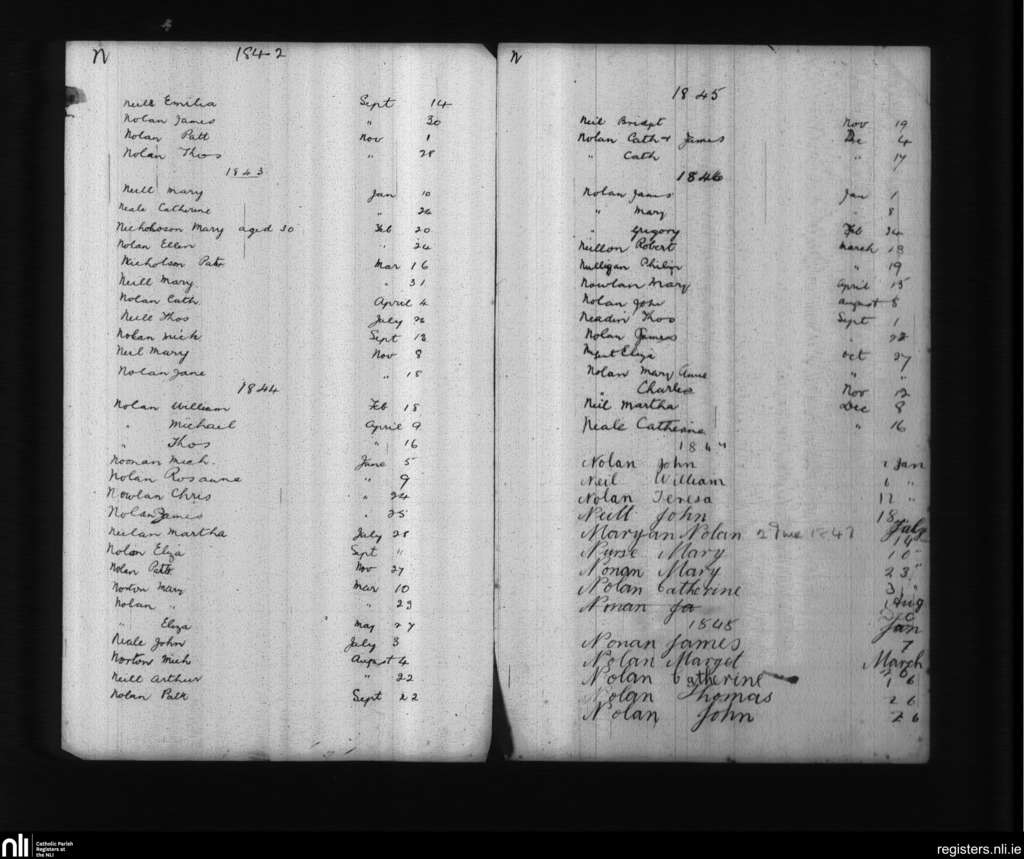 N 1842
Neill Emilia Sept 14
Nolan James " 30
Nolan Patt Nov 1
Nolan Thos " 28
1843
Neill Mary Jan 10
Neale Catherine " 26
Nicholoson Mary aged 30 Feb 20
Nolan Ellen " 24
Nicholson Patr Mar 16
Neill Mary " 31
Nolan Cath April 4
Neill Thos July 26
Nolan Mick Sept 13
Neil Mary Nov 8
Nolan Jane " 15
1844
Nolan William Feb 18
" Michael April 9
" Thos " 16
Noonan Mich. June 5
Nolan Rosanna " 9
Nowlan Chris " 24
Nolan James " 25
Neilan Martha July 28
Nolan Eliza Sept "
Nolan Patk Nov 27
Norton Mary Mar 10
Nolan " " 23
" Eliza May 27
Neale John July 3
Norton Mich August 4
Neill Arthur " 22
Nolan Patk Sept 22
N
1845
Neil Bridgt Nov 19
Nolan Cath & James Dec 4
" Cath " 17
1846
Nolan James Jan 1
" Mary " 8
" Gregory Feb 24
Neillon Robert March 18
Nulligan Philip " 19
Nowlan Mary April 15
Nolan John August 5
Neadin Thos Sept 1
Nolan James " 22
Eliza Oct 27
Nolan Mary Anne " "
" Charles Nov 12
Neil Martha Dec 8
Neale Catherine " 16
184
Nolan John 1 Jan
Neil William 6 "
Nolan Teresa 12 "
Neill John 18
Maryan Nolan 1847 July
14
Nurse Mary 10
Nonan Mary 23 "
Nolan Catherine 31 "
Nonan Ja Aug
Dec
1848 Jan
Nonan James 7
Nolan Margd March
Nolan Catherine 16
Nolan Thomas 26
Nolan John 26
nli
Catholic Parish
Registers at
the NLI
registers.nli.ie